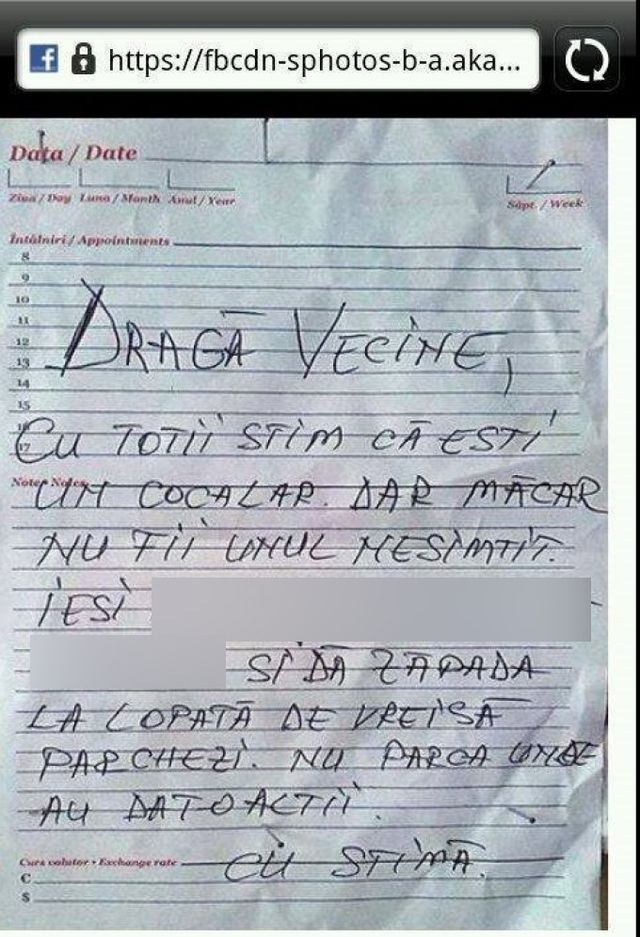 https://fbcdn-sphotos-b-a.aka...
Data / Date
Ziua / Day Luna / Month Anul / Year
Săpt. / Week
Întâlniri / Appointments
8
9
10
11
12
13
14
15
16
17
DRAGĂ VECINE,
CU TOTII STIM CĂ ESTI
Note / Notes
UN COCALAR. DAR MĂCAR
NU FII UNUL NESIMTIT.
IESI
SI DĂ ZĂPADA
LA LOPATĂ DE VREI SĂ
PARCHEZI. NU PARCA UNDE
AU DAT-O ALTII.
Curs valutar • Exchange rate
CU STIMĂ.
€
$